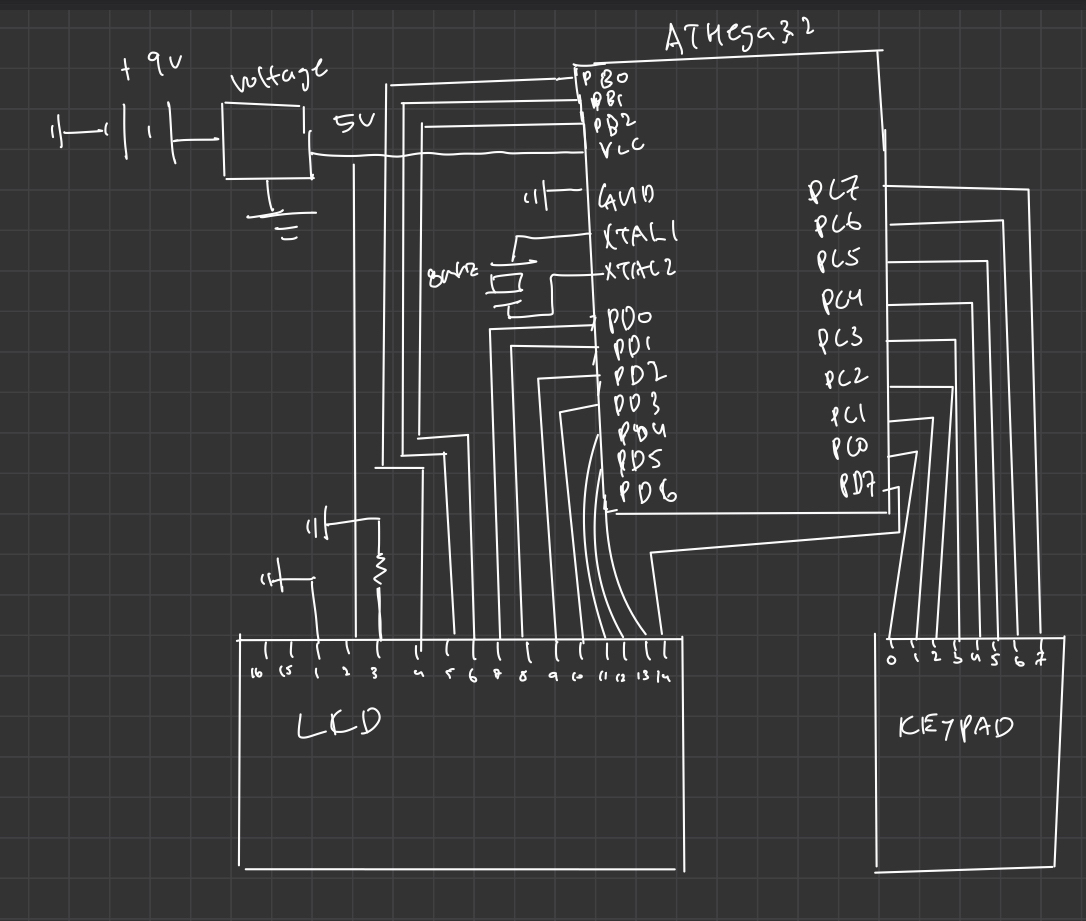 ATMega32
+ 9V
Voltage
5V
PB0
PB1
PB2
VCC
GND
XTAL1
XTAL2
8MHz
PD0
PD1
PD2
PD3
PD4
PD5
PD6
PC7
PC6
PC5
PC4
PC3
PC2
PC1
PC0
PD7
16 15 1 2 3 4 5 6 7 8 9 10 11 12 13 14
LCD
0 1 2 3 4 5 6 7
KEYPAD